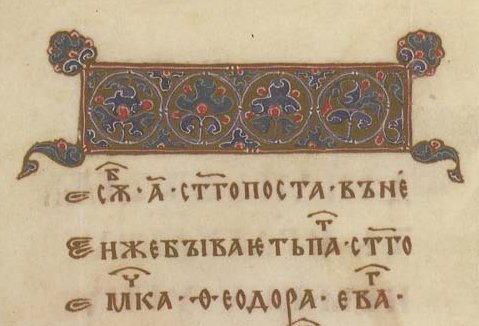 Є сѫⷠ · а҃ · ст҃го поста · въ не
Є нже бываѥть паⷮ · ст҃го
Є мⷱка · Ѳеодора · еваⷢ ·